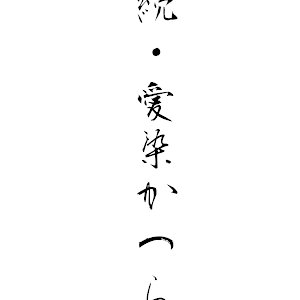 続・愛染かつら